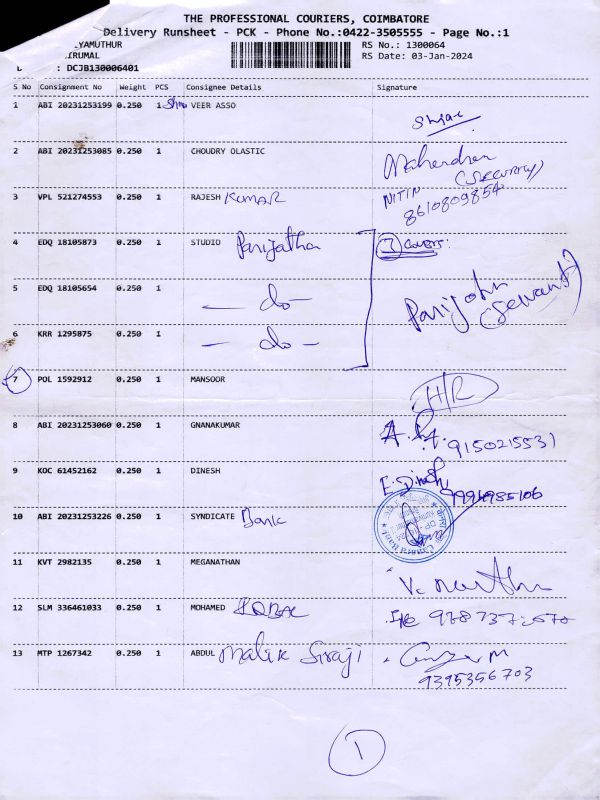 THE PROFESSIONAL COURIERS, COIMBATORE
Delivery Runsheet - PCK - Phone No.:0422-3505555 - Page No.:1
YAMUTHUR
IRUMAL
RS No.: 1300064
RS Date: 03-Jan-2024
: DCJB130006401
S No Consignment No Weight PCS Consignee Details Signature
1 ABI 20231253199 0.250 1 Shree VEER ASSO
2 ABI 20231253085 0.250 1 CHOUDRY OLASTIC Mahendran
(SECURITY)
3 VPL 521274553 0.250 1 RAJESH KUMAR NITIN
8610809854
4 EDQ 18105873 0.250 1 STUDIO Parijatha 3 Covers:
5 EDQ 18105654 0.250 1 — do —
6 KRR 1295875 0.250 1 — do —
7 POL 1592912 0.250 1 MANSOOR H/R
8 ABI 20231253060 0.250 1 GNANAKUMAR 9150215531
9 KOC 61452162 0.250 1 DINESH E. Dinesh
10 ABI 20231253226 0.250 1 SYNDICATE Bank
Canara Bank
11 KVT 2982135 0.250 1 MEGANATHAN
12 SLM 336461033 0.250 1 MOHAMED IQBAL
13 MTP 1267342 0.250 1 ABDUL Malik Siraji
9395356703
1